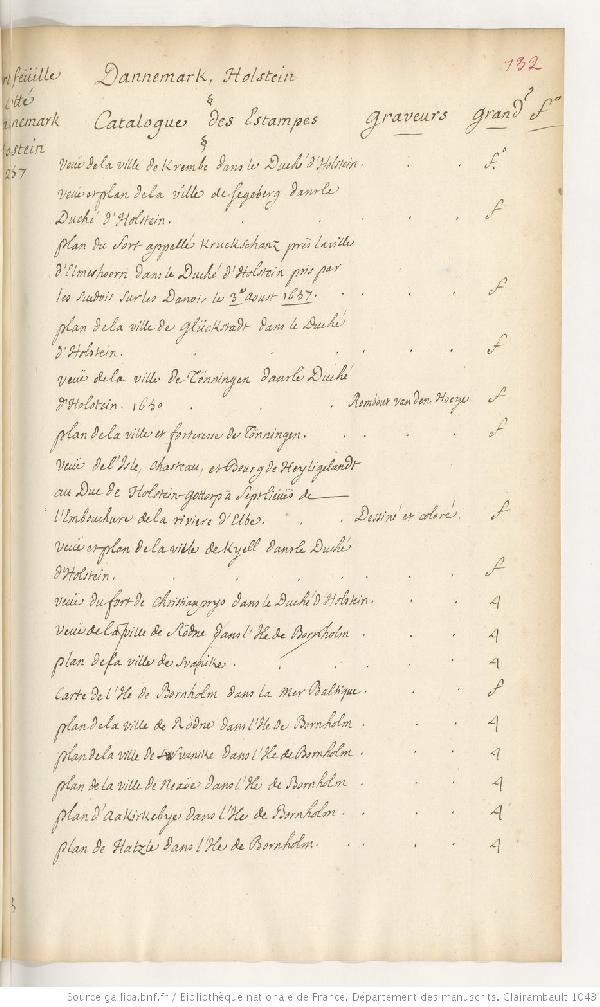 132
feüille
cotté
Dannemark
Holstein
257
Dannemark, Holstein
§
Catalogue des Estampes Graveurs Grandr fo
§
veüe de la ville de Krembe dans le Duché d'Holstein. . . fo
veüe et plan de la ville de Segeberg dans le
Duché d'Holstein. . . . f
plan du fort appellé Kruckschanz près la ville
d'Elmeshoorn dans le Duché d'Holstein pris par
les Suedois sur les Danois le 3e aoust 1657. . . . f
plan de la ville de Glückstadt dans le Duché
d'Holstein. . . . f
veüe de la ville de Tönningen dans le Duché
d'Holstein. 1650 . . Rombout van den Hoeye f
plan de la ville et forteresse de Tönningen. . . . f
Veüe de l'Isle, chasteau, et Bourg de Heyligelandt
au Duc de Holstein-gottorp à Sept lieües de
l'Embouchure de la riviere d'Elbe. . . Dessiné et coloré. f
veüe et plan de la ville de Kyell dans le Duché
d'Holstein. . . . f
veüe du fort de Christianprys dans le Duché d'Holstein. . . 4
Veüe de la ville de Rödne dans l'Ile de Bornholm . . 4
plan de la ville de Svanike . . . 4
Carte de l'Ile de Bornholm dans la Mer Baltique. . . f
plan de la ville de Rodne dans l'Ile de Bornholm . . 4
plan de la ville de Swanike dans l'Ile de Bornholm . . 4
plan de la ville de Nexöe dans l'Ile de Bornholm . . 4
plan d'Aakirkebye dans l'Ile de Bornholm. . . 4
plan de Hatzle dans l'Ile de Bornholm. . . 4
Source gallica.bnf.fr / Bibliothèque nationale de France. Département des manuscrits. Clairambault 1043